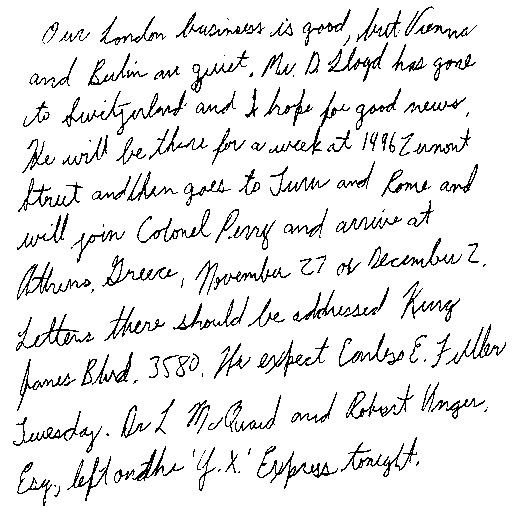 Our London business is good, but Vienna
and Berlin are quiet. Mr. D. Lloyd has gone
to Switzerland and I hope for good news.
He will be there for a week at 1496 Zermott
Street and then goes to Turin and Rome and
will join Colonel Perry and arrive at
Athens, Greece, November 27 or December 2.
Letters there should be addressed King
James Blvd. 3580. We expect Charles E. Fuller
Tuesday. Dr L McQuaid and Robert Unger,
Esq., left on the 'Y.X.' Express tonight.